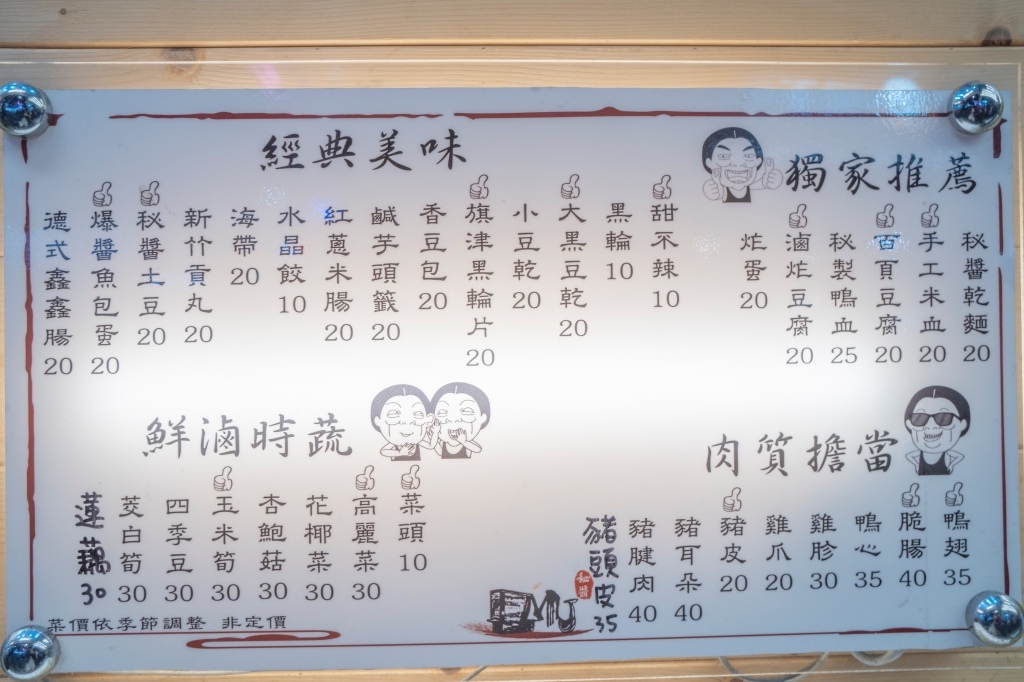 經典美味
甜不辣 10
黑輪 10
大黑豆乾 20
小豆乾 20
旗津黑輪片 20
香豆包 20
鹹芋頭籤 20
紅蔥米腸 20
水晶餃 10
海帶 20
新竹貢丸 20
秘醬土豆 20
爆醬魚包蛋 20
德式鑫鑫腸 20
獨家推薦
秘醬乾麵 20
手工米血 20
百頁豆腐 20
秘製鴨血 25
滷炸豆腐 20
炸蛋 20
鮮滷時蔬
菜頭 10
高麗菜 30
花椰菜 30
杏鮑菇 30
玉米筍 30
四季豆 30
茭白筍 30
蓮藕 30
菜價依季節調整 非定價
肉質擔當
鴨翅 35
脆腸 40
鴨心 35
雞胗 30
雞爪 20
豬皮 20
豬耳朵 40
豬腱肉 40
豬頭皮 35
秘醬